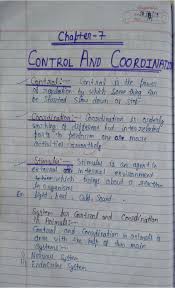 Chapter-7
CONTROL AND COORDINATION
Control :- Control is the power
of regulation by which some thing can
be started slow down or
Coordination :- Coordination is orderly
working of different but inter related
parts to perform one or more
activities smoothly
Stimulus :- Stimulus is an agent in
external or internal environment
which brings about a reaction
in organism
Ex. light, heat, Cold, Sound
System for Control and Coordination
in Animals :-
Control and Coordination in animals is
done with the help of two major
systems :-
i) Nervous System
ii) Endocrine System